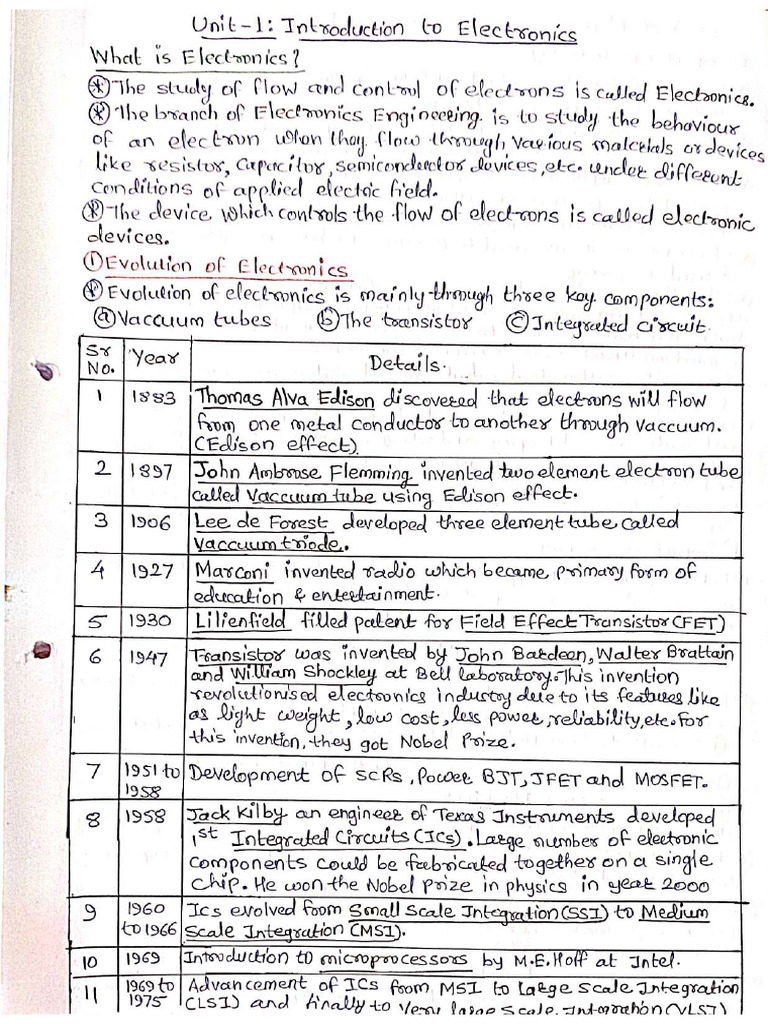 Unit-1: Introduction to Electronics
What is Electronics?
* The study of flow and control of electrons is called Electronics.
* The branch of Electronics Engineering is to study the behaviour
of an electron when they flow through various materials or devices
like resistor, capacitor, semiconductor devices, etc. under different
conditions of applied electric field.
* The device which controls the flow of electrons is called electronic
devices.
① Evolution of Electronics
* Evolution of electronics is mainly through three key components:
ⓐ Vaccuum tubes ⓑ The transistor ⓒ Integrated circuit.
Sr No. Year Details.
1 1883 Thomas Alva Edison discovered that electrons will flow
from one metal conductor to another through vaccuum.
(Edison effect).
2 1897 John Ambrose Flemming invented two element electron tube
called Vaccuum tube using Edison effect.
3 1906 Lee de Forest developed three element tube called
Vaccuum triode.
4 1927 Marconi invented radio which became primary form of
education & entertainment.
5 1930 Lilienfield filled patent for Field Effect Transistor (FET)
6 1947 Transistor was invented by John Bardeen, Walter Brattain
and William Shockley at Bell laboratory. This invention
revolutionised electronics industry due to its features like
as light weight, low cost, less power, reliability, etc. For
this invention, they got Nobel Prize.
7 1951 to 1958 Development of SCRs, Power BJT, JFET and MOSFET.
8 1958 Jack Kilby an engineer of Texas Instruments developed
1st Integrated Circuits (ICs). Large number of electronic
components could be fabricated together on a single
chip. He won the Nobel Prize in physics in year 2000
9 1960 to 1966 Ics evolved from Small Scale Integration (SSI) to Medium
Scale Integration (MSI).
10 1969 Introduction to microprocessors by M.E. Hoff at Intel.
11 1969 to 1975 Advancement of ICs from MSI to Large Scale Integration
(LSI) and finally to Very Large Scale Integration (VLSI)